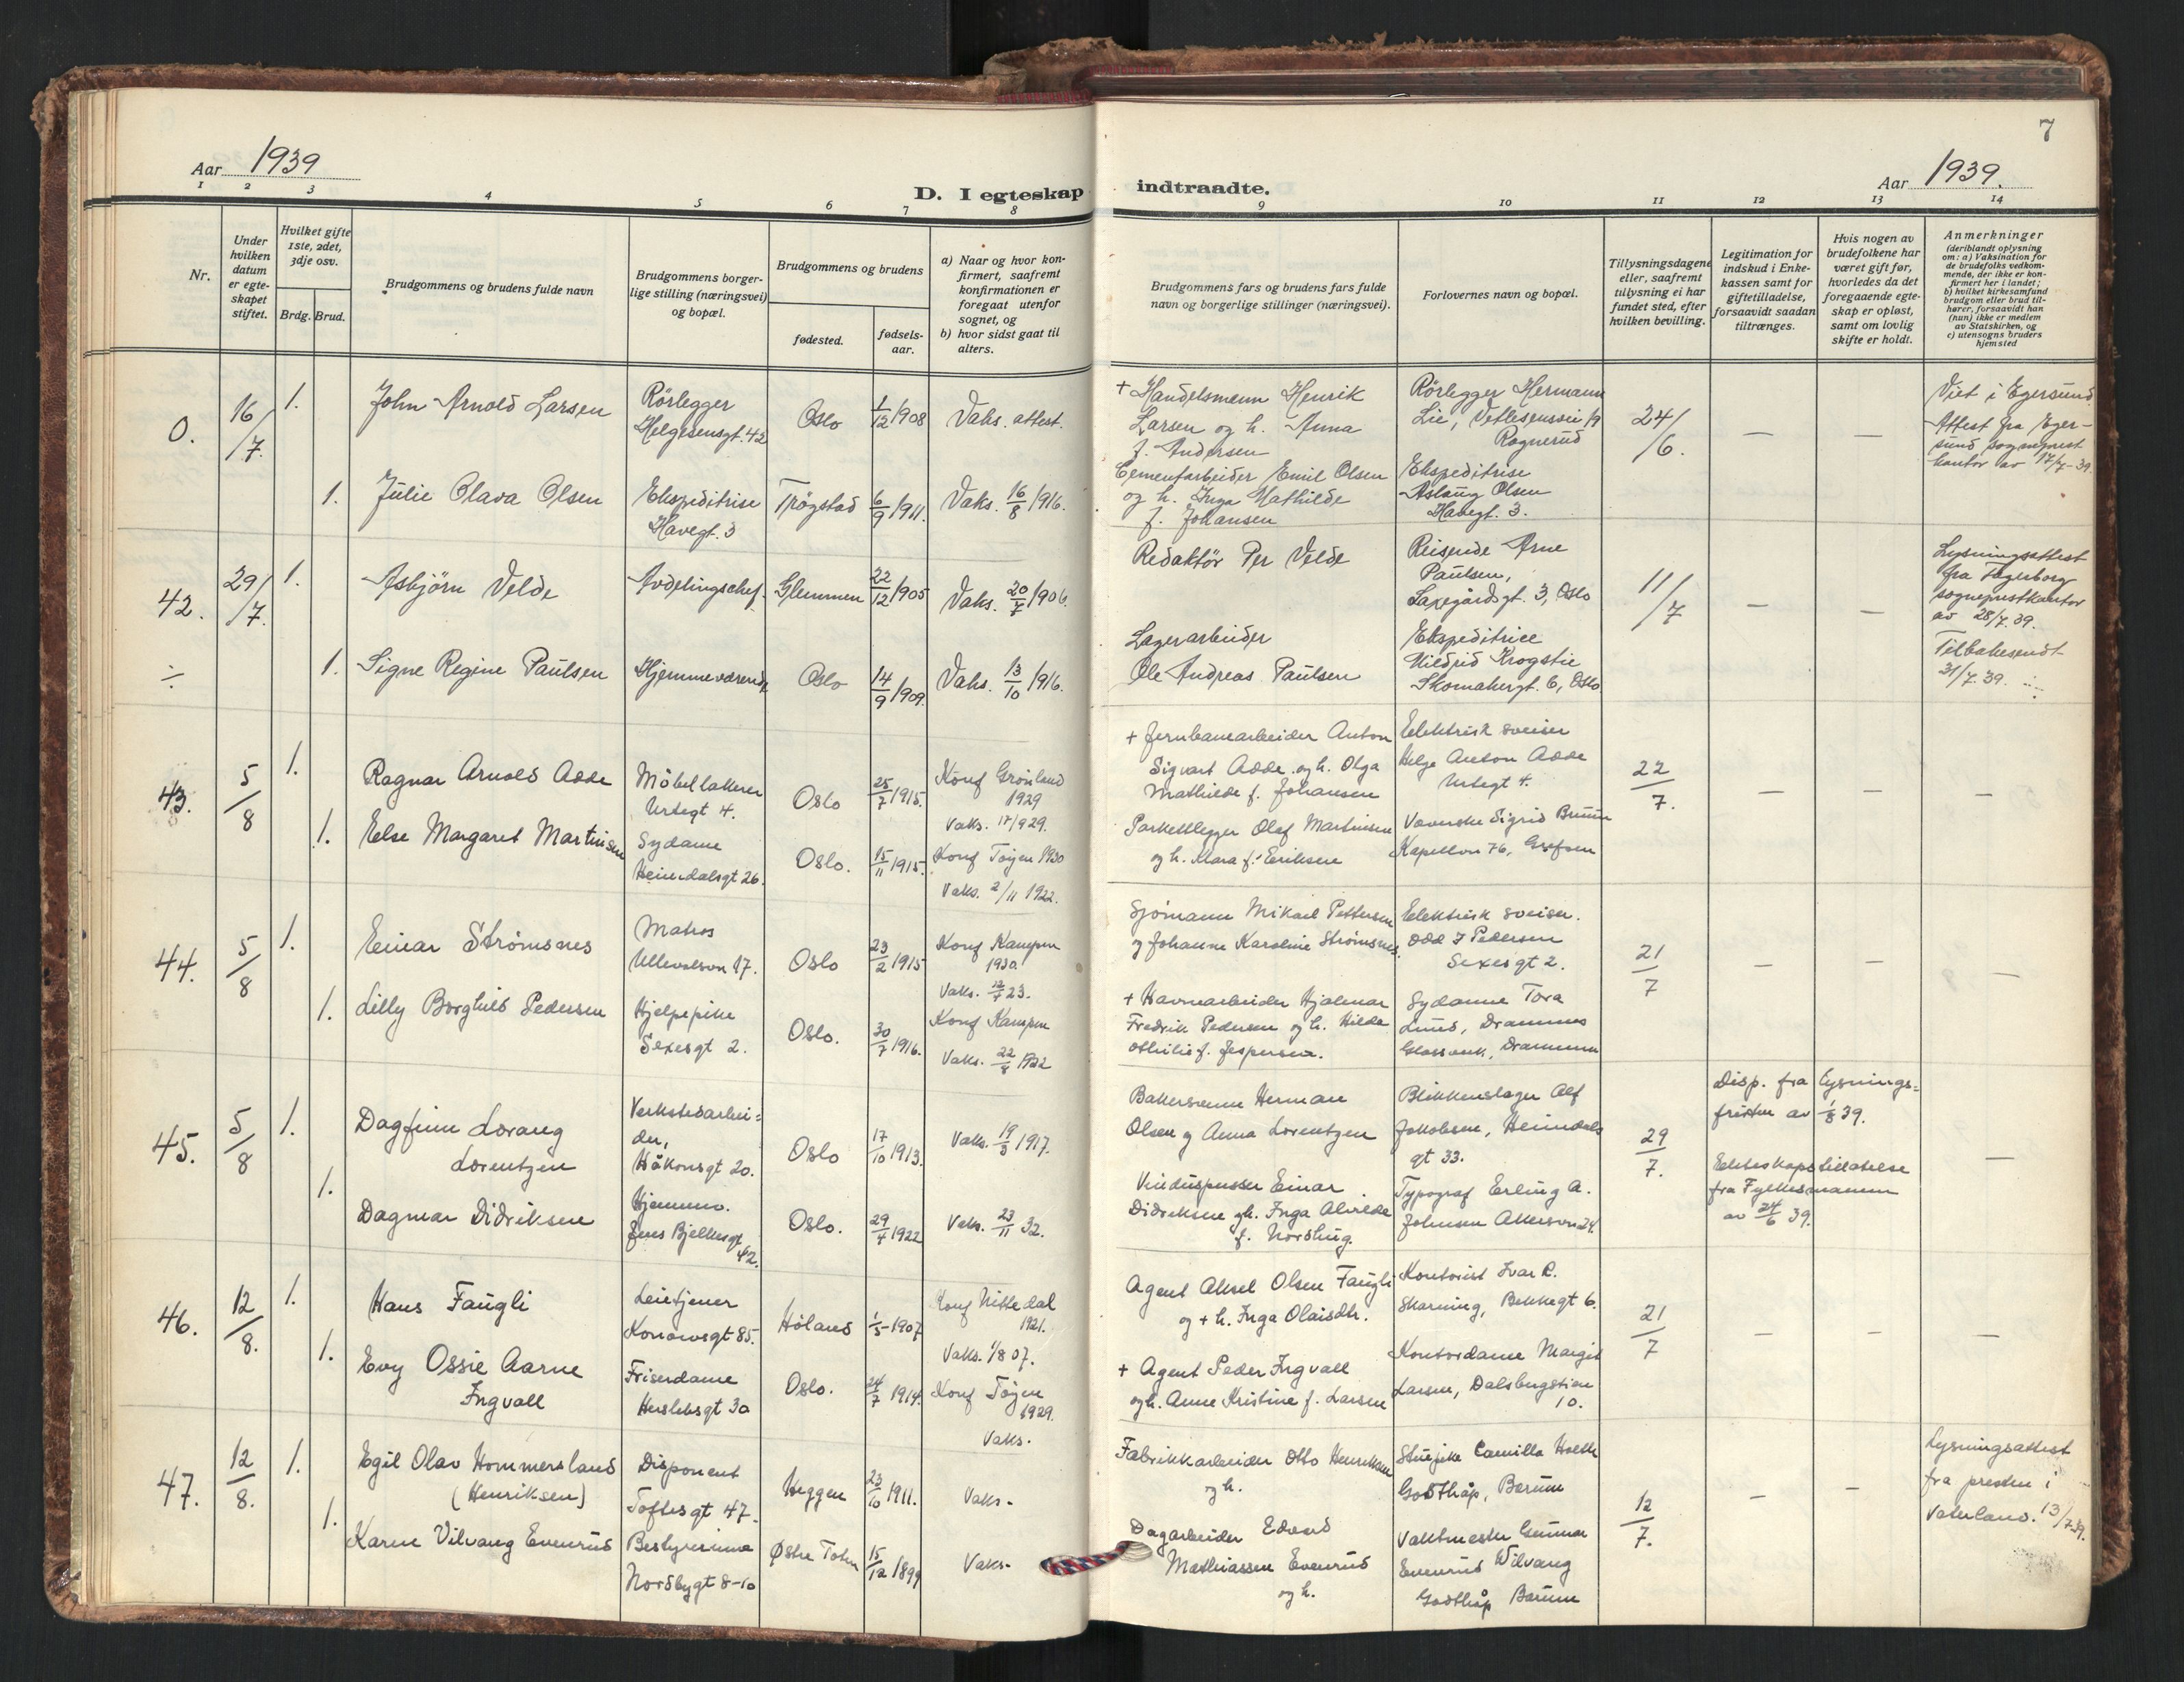 7
Aar 1939
D. I egteskap
indtraadte.
Aar 1939.
1 2 3 4 5 6 7 8 9 10 11 12 13 14
Nr.
Under hvilken datum er egte-skapet stiftet.
Hvilket gifte 1ste, 2det, 3dje osv.
Brdg. Brud.
Brudgommens og brudens fulde navn
Brudgommens borger-
lige stilling (næringsvei)
og bopæl.
Brudgommens og brudens
fødested.
fødsels-
aar.
a) Naar og hvor kon-
firmert, saafremt
konfirmationen er
foregaat utenfor
sognet, og
b) hvor sidst gaat til
alters.
Brudgommens fars og brudens fars fulde
navn og borgerlige stillinger (næringsvei).
Forlovernes navn og bopæl.
Tillysningsdagene
eller, saafremt
tillysning ei har
fundet sted, efter
hvilken bevilling.
Legitimation for
indskud i Enke-
kassen samt for
giftetilladelse,
forsaavidt saadan
tiltrænges.
Hvis nogen av
brudefolkene har
været gift før,
hvorledes da det
foregaaende egte-
skap er opløst,
samt om lovlig
skifte er holdt.
Anmerkninger
(deriblandt oplysning
om: a) Vaksination for
de brudefolks vedkom-
mende, der ikke er kon-
firmert her i landet;
b) hvilket kirkesamfund
brudgom eller brud til-
hører, forsaavidt han
(hun) ikke er medlem
av Statskirken, og
c) utensogns bruders
hjemsted
0.
16/7.
1.
John Arnold Larsen
Rörlegger
Helgesensgt. 42
Oslo
1/12 1908
Vaks. attest.
+ Handelsmenn Henrik
Larsen og h. Anna
f. Andersen
Rörlegger Hermann
Lie, Vetlesensvei 19
Rognerud
24/6.
—
—
Viet i Egersund
Attest fra Eger-
sund sogneprest
kontor av 17/7-39.
1.
Julie Olava Olsen
Ekspeditrise
Havegt. 3
Trøgstad
6/9 1911.
Vaks. 16/8 1916.
Cementarbeider Emil Olsen
og h. Inga Mathilde
f. Johansen
Ekspeditrise
Aslaug Olsen
Havegt. 3.
42.
29/7.
1.
Asbjörn Velde
Avdelingschef.
Glemmen
22/12 1905
Vaks. 20/7 1906.
Redaktör Per Velde
Reisende Arne
Paulsen,
Laxegårdsgt. 3, Oslo
11/7
—
—
Lysningsattest
fra Fagerborg
sogneprestkontor
av 28/7.39.
÷
1.
Signe Regine Paulsen
Hjemmeværende
Oslo
14/9 1909.
Vaks. 13/10 1916.
Lagerarbeider
Ole Andreas Paulsen
Ekspeditrice
Hildrid Krogstie
Skomakergt. 6, Oslo
Tilbakesendt
31/7.39.
43.
5/8
1.
Ragnar Arnold Adde
Möbellakerer
Urtegt 4.
Oslo
25/7 1915.
Konf Grønland
1929
Vaks. 17/9 29.
+ Jernbanearbeider Anton
Sigvart Adde og h. Olga
Mathilde f. Johansen
Elektrisk sveiser
Helge Anton Adde
Urtegt 4.
22/7.
—
—
—
1.
Else Margaret Martinsen
Sydame
Heimdalsgt 26.
Oslo.
15/11 1915.
Konf Tøyen 1930
Vaks. 2/11 1922.
Parkettlegger Olaf Martinsen
og h. Klara f. Eriksen
Væverske Sigrid Bruun
Kapellvn 76, Grefsen
44.
5/8
1.
Einar Strømsnes
Matros
Ullevålsvn 17.
Oslo
23/2 1915
Konf Kampen
1930.
Vaks. 12/7 23.
Sjømann Mikael Pettersen
og Johanne Karoline Strømsnes.
Elektrisk sveiser.
Odd J Pedersen
Sexesgt 2.
21/7
—
—
—
1.
Lilly Borghild Pedersen
Hjelpepike
Sexesgt 2.
Oslo.
30/7 1916.
Konf Kampen
Vaks. 22/8 1922
+ Havnearbeider Hjalmar
Fredrik Pedersen og h. Hilde
Othilie f. Jespersen.
Sydamme Tora
Lund, Drammens
Glassverk, Drammen
45.
5/8
1.
Dagfinn Lorang
Lorentzen
Verkstedarbei=
der,
Håkonsgt 20.
Oslo
17/10 1913.
Vaks. 19/3 1917.
Bakersvenn Herman
Olsen og Anna Lorentzen
Blikkenslager Alf
Jakobsen, Heimdals
gt 33.
29/7.
Disp. fra lysnings=
fristen av 1/8 39.
—
1.
Dagmar Didriksen
Hjemmev.
Jens Bjelkesgt
42.
Oslo.
29/4 1922
Vaks. 23/11 32.
Vinduspusser Einar
Didriksen og h. Inga Alvilde
f. Norstug.
Typograf Erling A.
Johnsen Akersvn 24.
Ekteskapstillatelse
fra Fylkesmannen
av 24/6 39.
46.
12/8.
1.
Hans Faugli
Leietjener
Konowsgt 85.
Høland
1/5 1907
Konf Nittedal
1921.
Vaks. 1/8 07.
Agent Aksel Olsen Faugli
og + h. Inga Olaisdtr.
Kontorist Ivar R.
Skarning, Bekkegt 6.
21/7
—
—
—
1.
Evy Ossie Aarne
Ingvall
Friserdame
Herslebsgt 30
Oslo.
24/7 1914.
Konf Tøyen
1929.
Vaks.
+ Agent Peder Ingvall
og h. Anne Kristine f. Larsen
Kontordame Margit
Larsen, Dalsbergstien
10.
47.
12/8.
1.
Egil Olav Hommersland
(Henriksen)
Disponent
Toftesgt 47.
Heggen
23/10 1911.
Vaks.
Fabrikkarbeider Otto Henriksen
og h.
Stuepike Camilla Holth
Godthåp, Bærum
12/7.
—
—
Lysningsattest
fra presten i
Vaterland. 13/7 39.
1.
Karen Vilvang Evenrud
Bestyrerinne
Nordbygt 8-10
Østre Toten
15/12 1899
Vaks.
Dagarbeider Edvard
Mathiassen Evenrud
og h.
Vaktmester Gunnar
Evenrud Wilvang
Godthåp Bærum